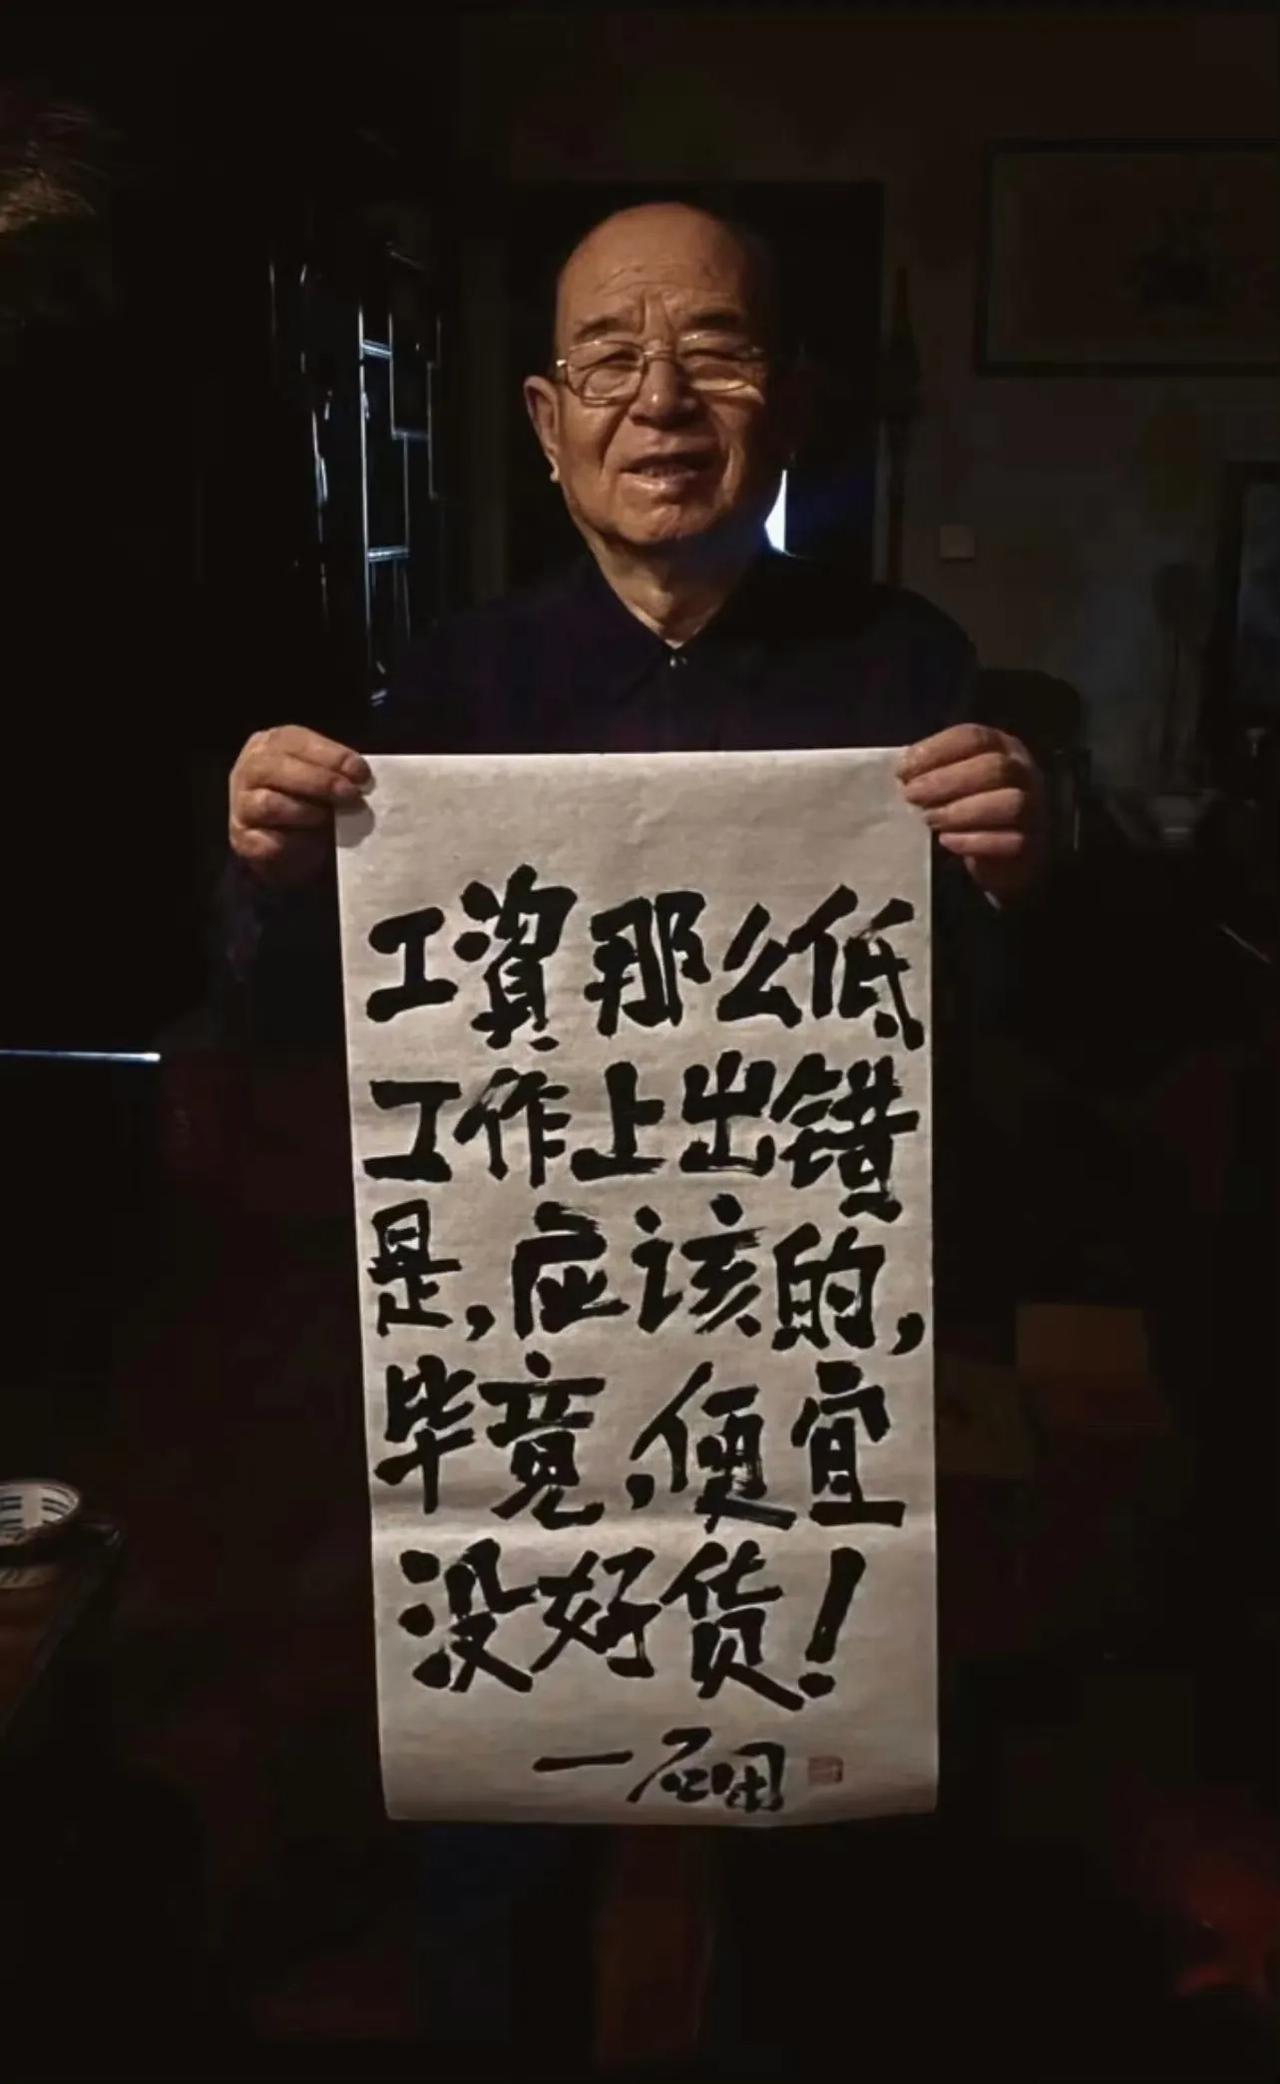 工資那么低
工作上出错
是,应该的,
毕竟,便宜
没好货!
一石围